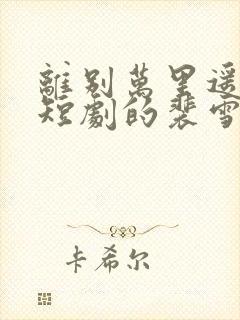 離别萬里遥
短劇的裴雪
卡希尔